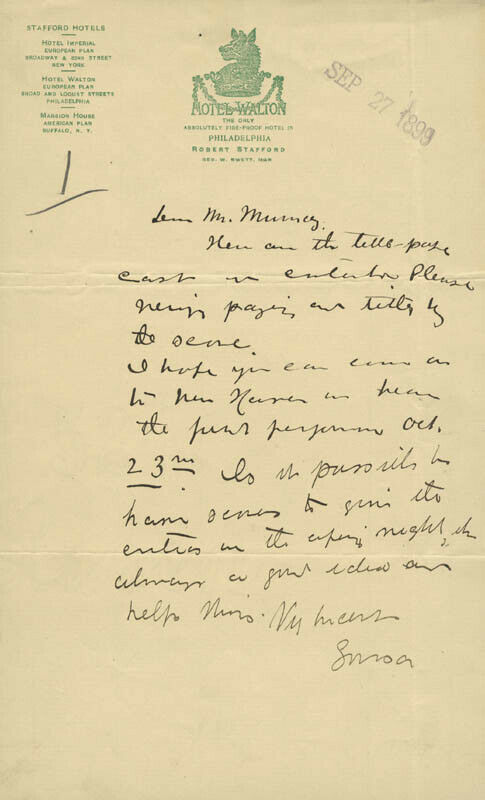 STAFFORD HOTELS
HOTEL IMPERIAL
EUROPEAN PLAN
BROADWAY & 32ND STREET
NEW YORK
HOTEL WALTON
EUROPEAN PLAN
BROAD AND LOCUST STREETS
PHILADELPHIA
MANSION HOUSE
AMERICAN PLAN
BUFFALO, N. Y.
HOTEL WALTON
THE ONLY
ABSOLUTELY FIRE-PROOF HOTEL IN
PHILADELPHIA
ROBERT STAFFORD
GEO. W. SWETT, MGR
SEP 27 1899
1
Dear Mr. Murray.
Here are the title-page
cast &c. Please
paging and titles by
the score.
I hope you can come on
to New Haven and hear
the first performance Oct.
23rd Is it possible to
have scores to give the
critics on the opening night, its
always a good idea and
helps things. Vy sincerely
Sousa